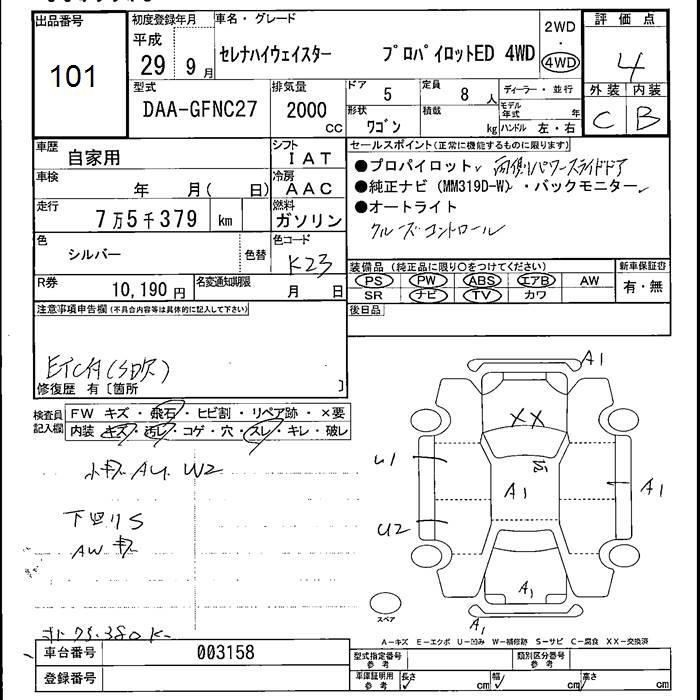 出品番号
101
初度登録年月
平成
29 9月
車名・グレード
セレナハイウェイスター プロパイロットED 4WD
2WD
・
4WD
評価点
4
外装 内装
C B
型式
DAA-GFNC27
排気量
2000
CC
ドア
5
定員
8 人
形状
ワゴン
積載
kg
ディーラー・並行
モデル年式 年
ハンドル 左・右
車歴
自家用
シフト
IAT
車検
年 月( 日)
冷房
AAC
走行
7万5千379 km
燃料
ガソリン
色
シルバー
色替
色コード
K23
R券
10,190円
名変通知期限
月 日
セールスポイント(正常に機能するものに限ります)
●プロパイロット 両側パワースライドドア
●純正ナビ(MM319D-W)・バックモニター
●オートライト
クルーズコントロール
装備品(純正品に限り○をつけてください)
PS PW ABS エアB AW
SR ナビ TV カワ
新車保証書
有・無
後日品
注意事項申告欄(不具合内容等は具体的に記入して下さい)
ETC付(SD欠)
修復歴 有〔箇所 〕
検査員記入欄
FW キズ・飛石・ヒビ割・リペア跡・×要
内装 キズ・汚レ・コゲ・穴・スレ・キレ・破レ
小キズ AU W2
下回りS
AW キズ
A1
XX
U1
U2
A1
A1
A1
A1
スペア
A-キズ E-エクボ U-凹み W-補修跡 S-サビ C-腐食 XX-交換済
車台番号
003158
登録番号
型式指定番号
参考
類別区分番号
参考
車庫証明用
参考
長さ cm 幅 cm 高さ cm